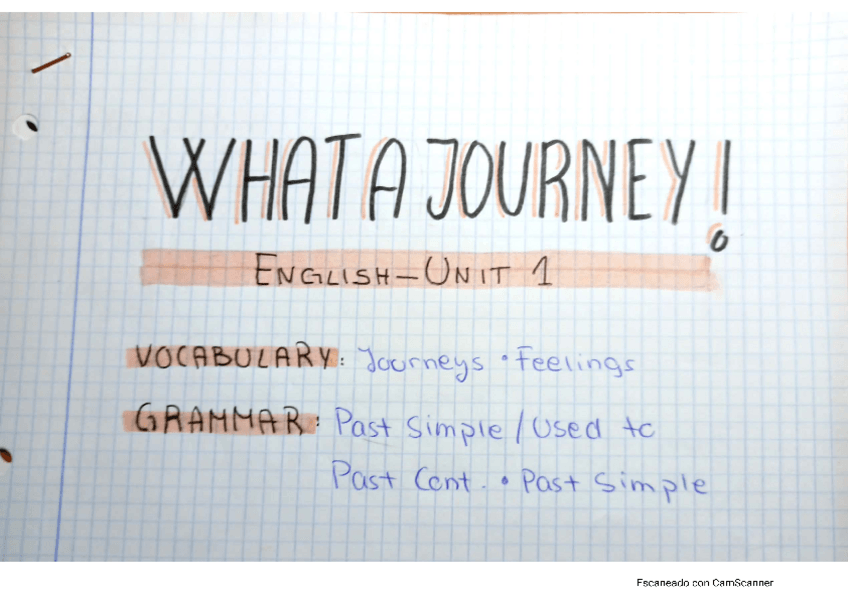 WHAT A JOURNEY!
ENGLISH-UNIT 1
VOCABULARY: Journeys • Feelings
GRAMMAR: Past Simple / Used to
Past Cont. • Past Simple
Escaneado con CamScanner